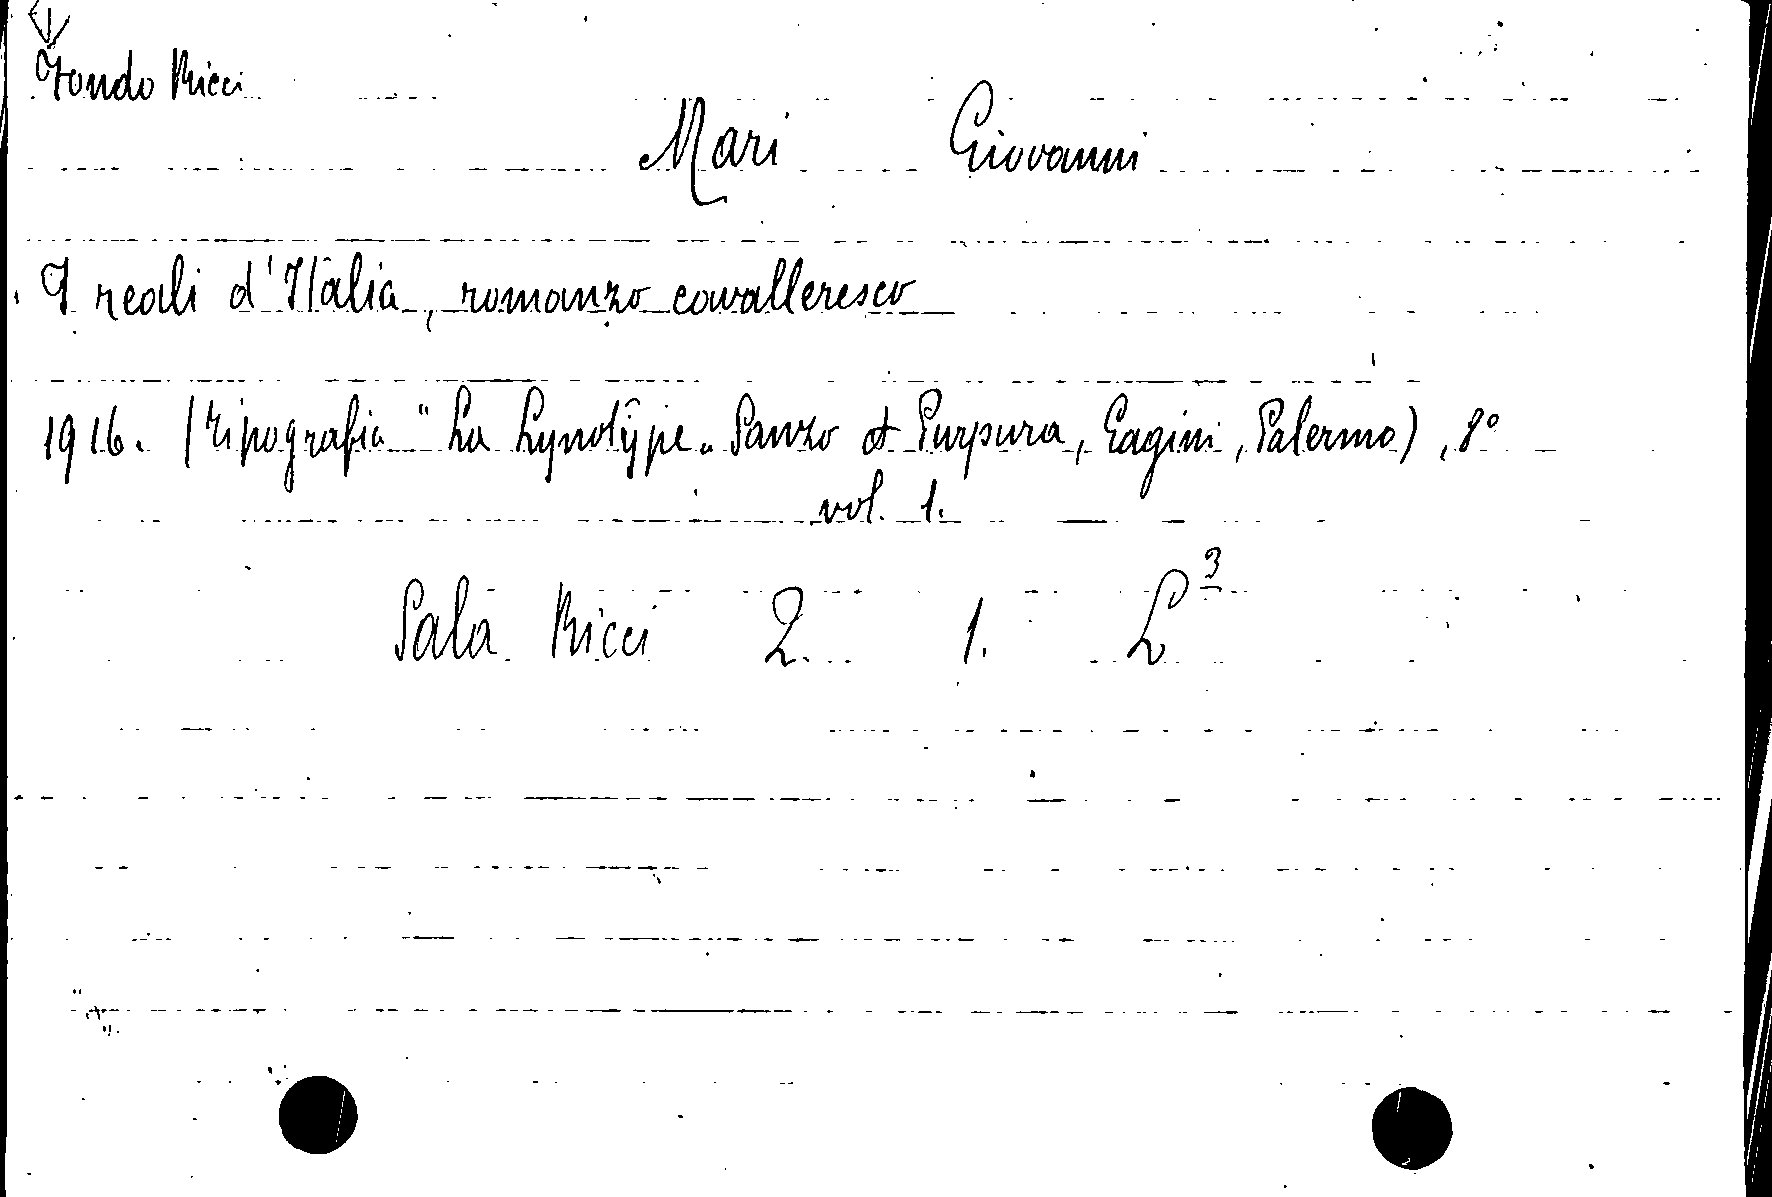 Fondo Ricci
Mari Giovanni
I reali d'Italia, romanzo cavalleresco
1916. (Tipografia "La Lynotÿpe" Sanzo et Purpura, Gagini, Palermo), 8°
vol. 1.
Sala Ricci 2. 1. L³